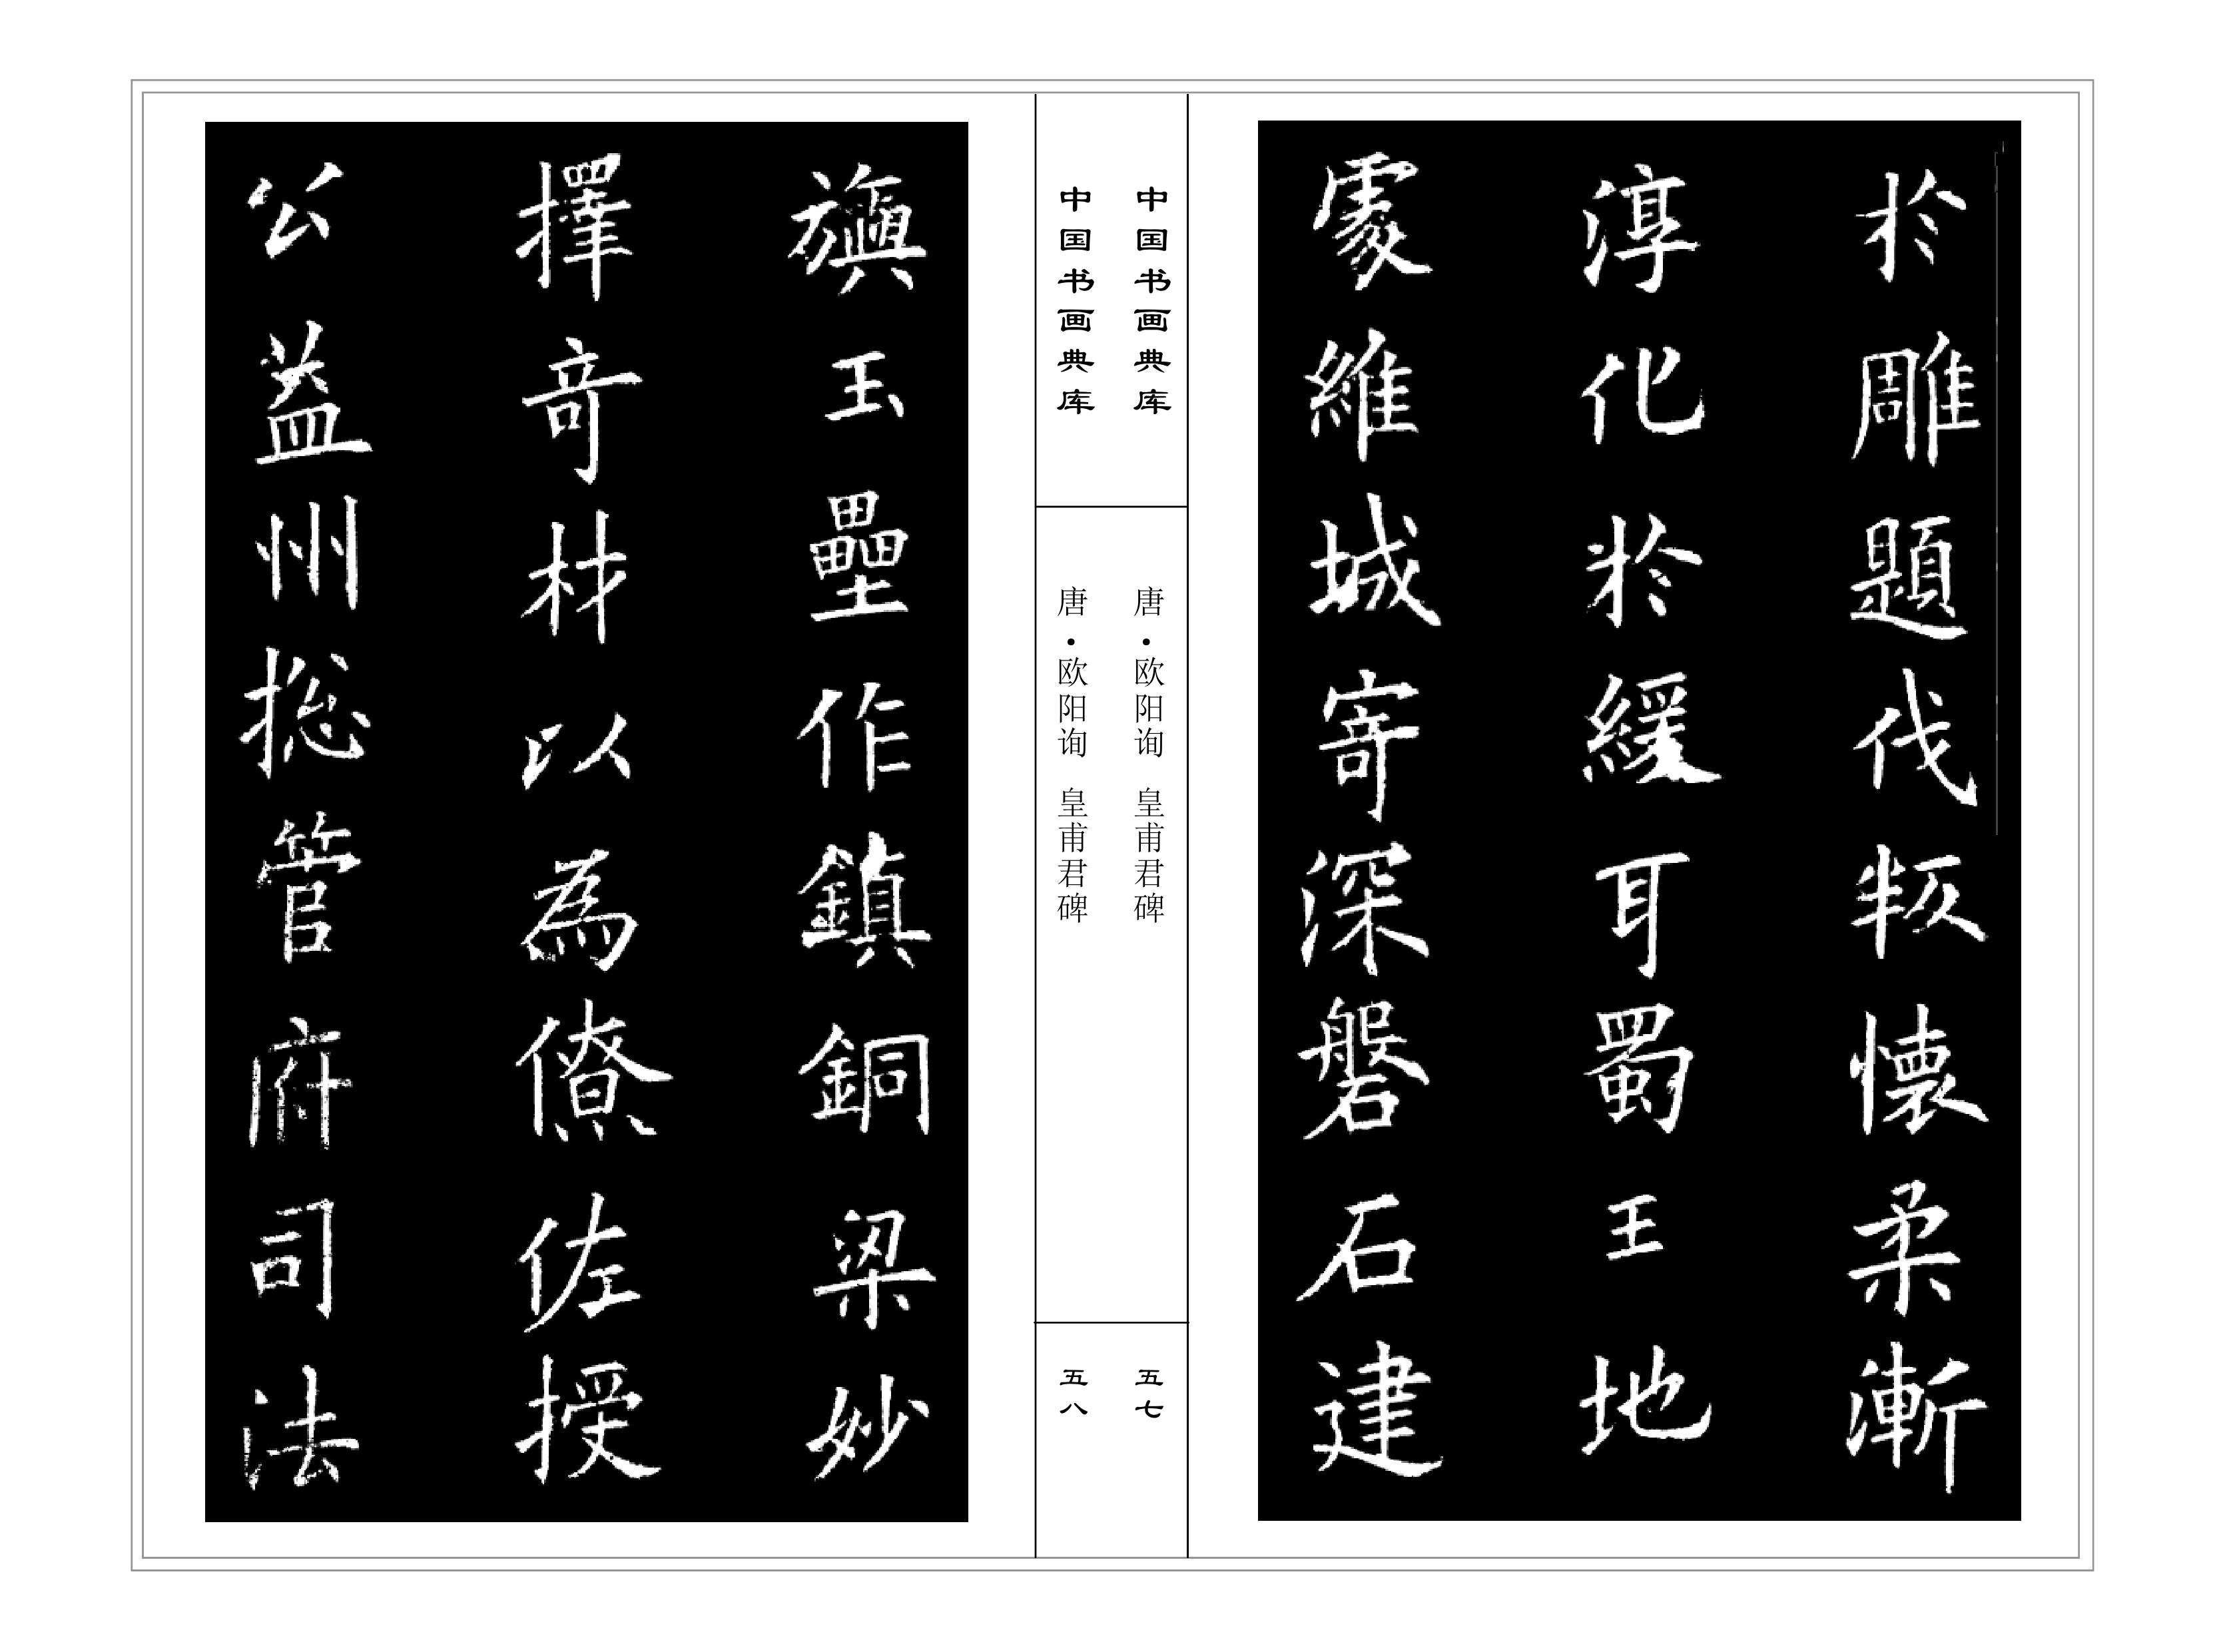 於雕題伐叛懷柔漸
淳化於緩耳蜀王地
處維城寄深磐石建
中国书画典库
唐·欧阳询 皇甫君碑
五七
中国书画典库
唐·欧阳询 皇甫君碑
五八
旟玉壘作鎮銅梁妙
擇奇材以為僚佐授
公益州揔管府司法